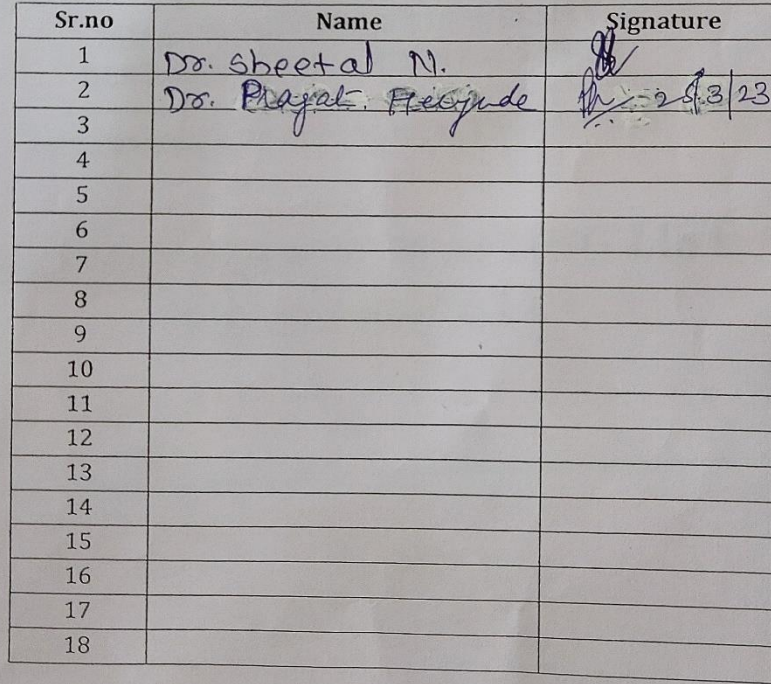 Sr.no Name Signature
1 Dr. Sheetal N.
2 Dr. 25/3/23
3
4
5
6
7
8
9
10
11
12
13
14
15
16
17
18